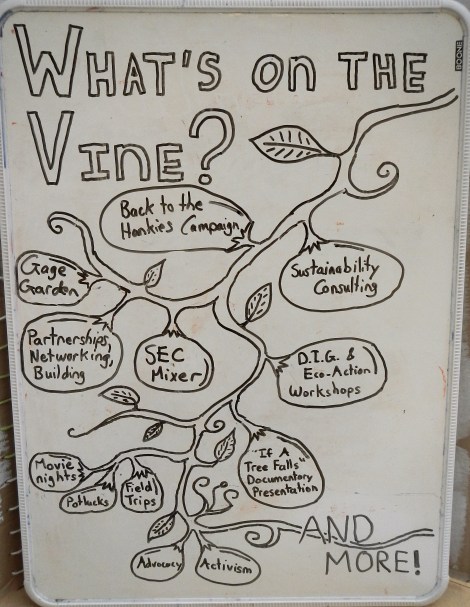 WHAT'S ON THE
VINE?
BOONE
Back to the
Hankies Campaign
Gage
Garden
Sustainability
Consulting
Partnerships,
Networking,
Building
SEC
Mixer
D.I.G. &
Eco-Action
Workshops
"If A
Tree Falls"
Documentary
Presentation
Movie
nights
Potlucks
Field
Trips
Advocacy
Activism
AND
MORE!